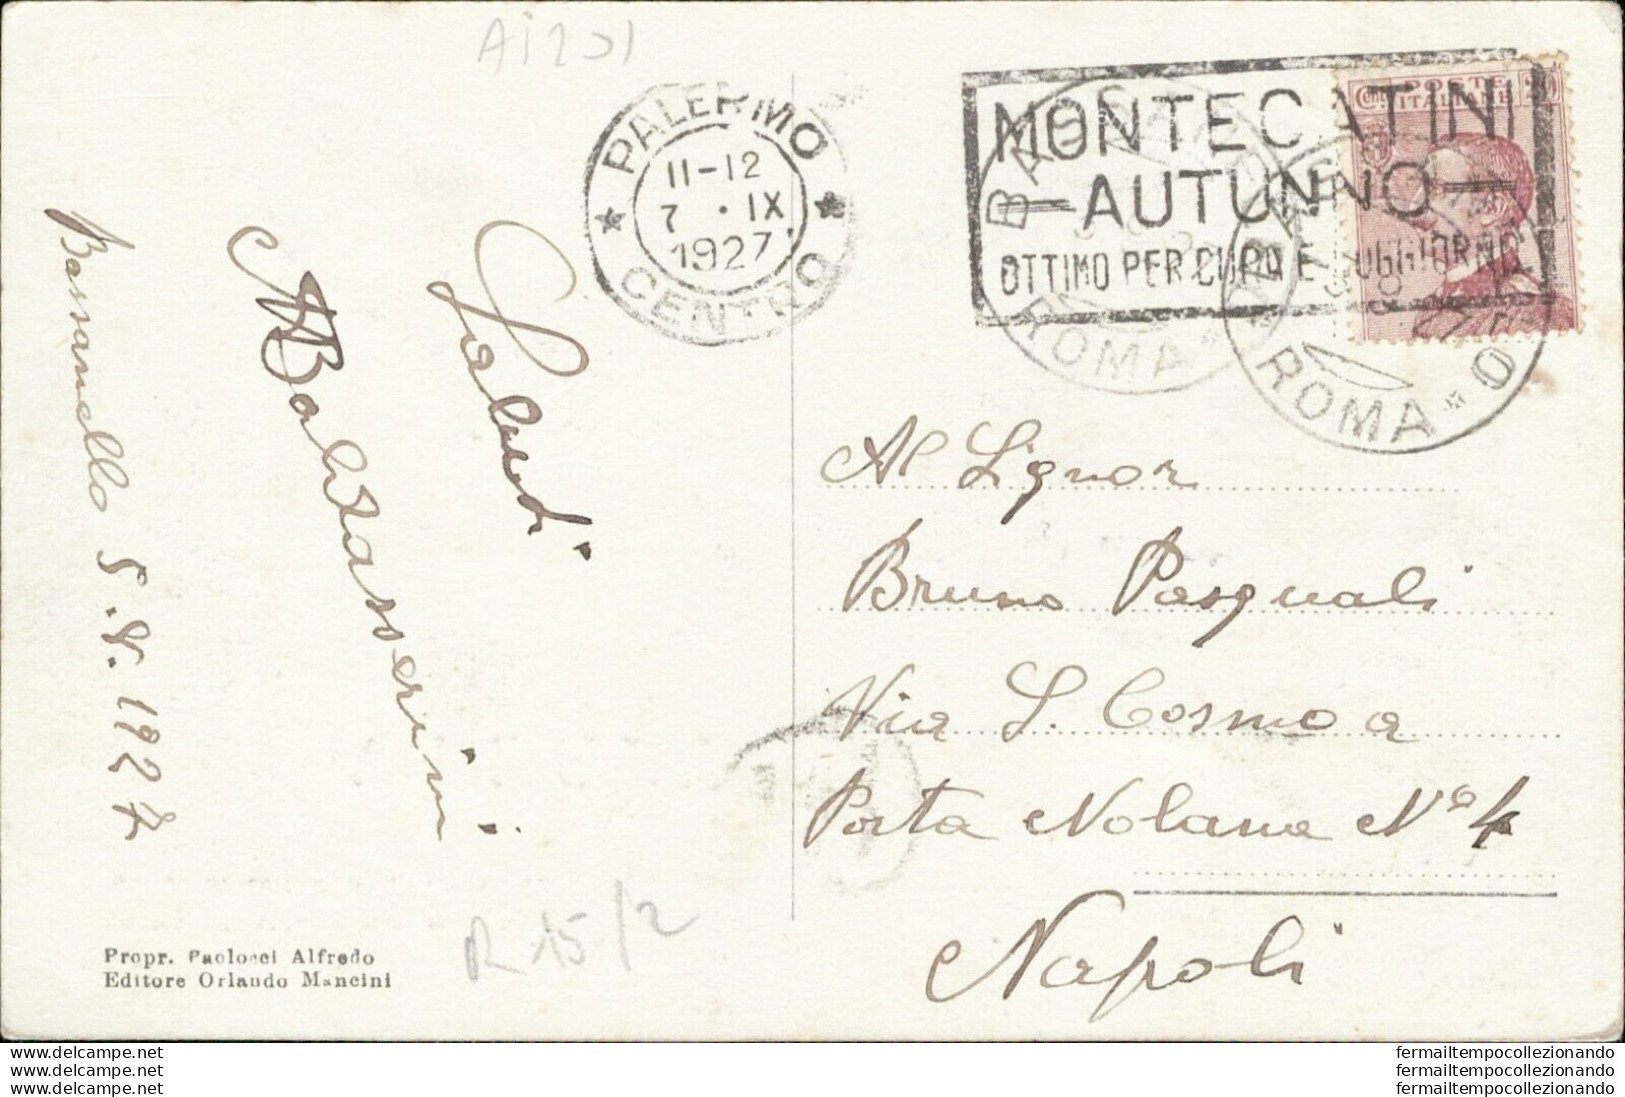 Ai201
PALERMO
11-12
7 · IX
1927
CENTRO
MONTECATINI
AUTUNNO
OTTIMO PER CURA E SOGGIORNO
BASSANELLO
ROMA
BASSANELLO
ROMA
Cent. POSTE 20
ITALIANE
Bassanello 5.9.1927
ABaldasserini
Saluti
Al Signor
Bruno Pasquali
Via S. Cosmo a
Porta Nolana Nº 4
Napoli
R 15/2
Propr. Paolocci Alfredo
Editore Orlando Mancini
www.delcampe.net
www.delcampe.net
www.delcampe.net
fermailtempocollezionando
fermailtempocollezionando
fermailtempocollezionando